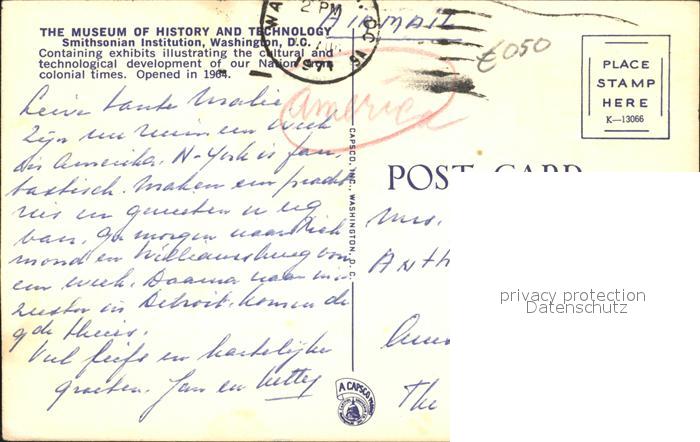 THE MUSEUM OF HISTORY AND TECHNOLOGY
Smithsonian Institution, Washington, D.C.
Containing exhibits illustrating the cultural and
technological development of our Nation from
colonial times. Opened in 1964.
2 PM
1971
AIRMAIL
€050
America
PLACE
STAMP
HERE
K—13066
Lieve tante Malie
Zijn nu ruim een week
in Amerika. N-York is fan-
tastisch. Maken een pracht
reis en genieten er erg
van. Ga morgen naar Rich
mond en Williamsburg voor
een week. Daarna naar mijn
zuster in Detroit. Komen de
9de thuis.
Veel liefs en hartelijke
groeten. Jan en Netty
CAPSCO, INC., WASHINGTON, D. C.
A CAPSCO
POST CARD
Mrs.
Anth
Am
The
privacy protection
Datenschutz